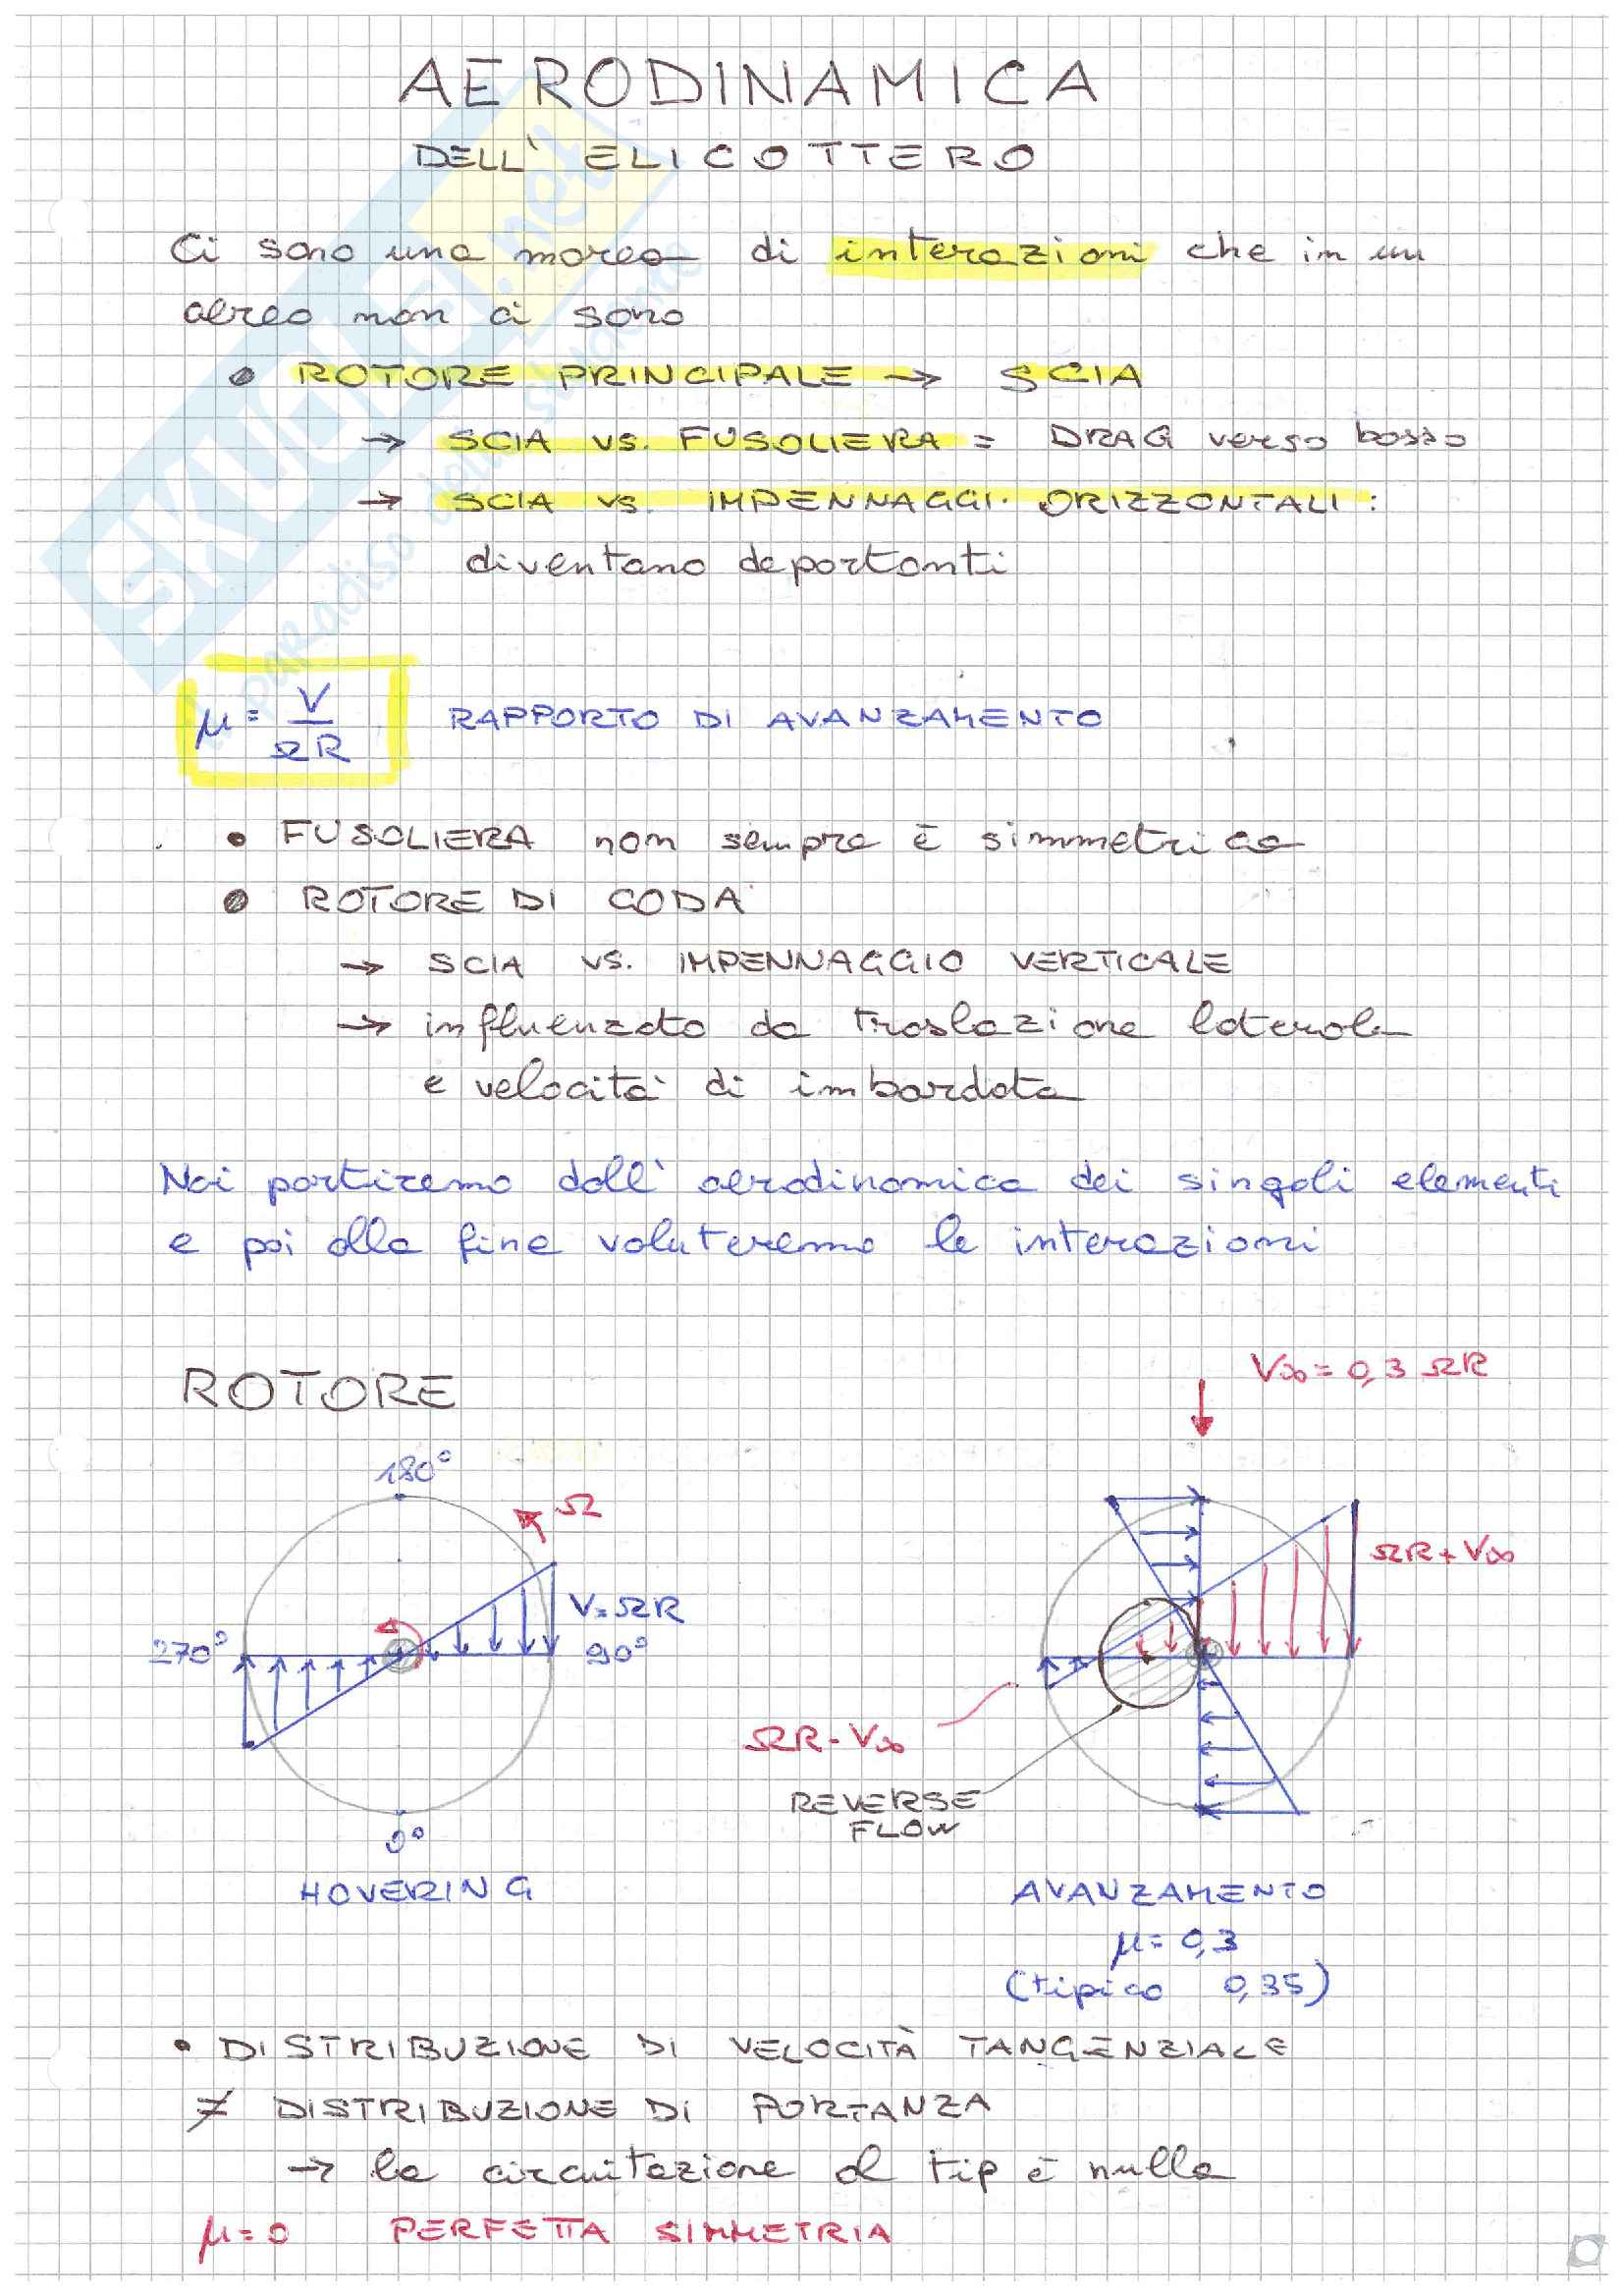 AERODINAMICA
DELL' ELICOTTERO
Ci sono una marea di interazioni che in un
aereo non ci sono
• ROTORE PRINCIPALE → SCIA
→ SCIA vs. FUSOLIERA = DRAG verso basso
→ SCIA vs. IMPENNAGGI ORIZZONTALI:
diventano deportanti
μ = V / ΩR RAPPORTO DI AVANZAMENTO
• FUSOLIERA non sempre è simmetrica
• ROTORE DI CODA
→ SCIA vs. IMPENNAGGIO VERTICALE
→ influenzato da traslazione laterale
e velocità di imbardata
Noi partiremo dall' aerodinamica dei singoli elementi
e poi alla fine valuteremo le interazioni
ROTORE
V∞ = 0,3 ΩR
180°
Ω
ΩR + V∞
V = ΩR
270°
90°
ΩR - V∞
REVERSE
FLOW
0°
HOVERING
AVANZAMENTO
μ = 0,3
(tipico 0,35)
• DISTRIBUZIONE DI VELOCITÀ TANGENZIALE
≠ DISTRIBUZIONE DI PORTANZA
→ la circuitazione al tip è nulla
μ = 0 PERFETTA SIMMETRIA
SKUOLA.net
il paradiso dello studente